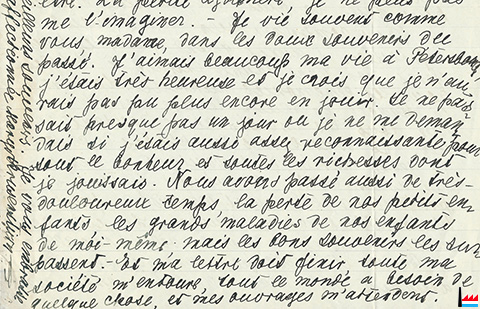 me l'imaginer. - Je vis souvent comme
vous, madame, dans les doux souvenirs du
passé. J'aimais beaucoup ma vie à Petersbourg
j'étais très heureuse et je crois que je n'au-
rais pas pu plus encore en jouir. Il ne pas-
sait presque pas un jour ou je ne me deman-
dais si j'étais aussi assez reconnaissante pour
tout le bonheur et toutes les richesses dont
je jouissais. Nous avons passé aussi de très-
douloureux temps, la perte de nos petits en-
fants les grands maladies de nos enfants
de moi-même mais les bons souvenirs les sur
passent. - Et ma lettre doit finir toute ma
société m'entoure, tout le monde a besoin de
quelque chose, et mes ouvrages m'attendent.